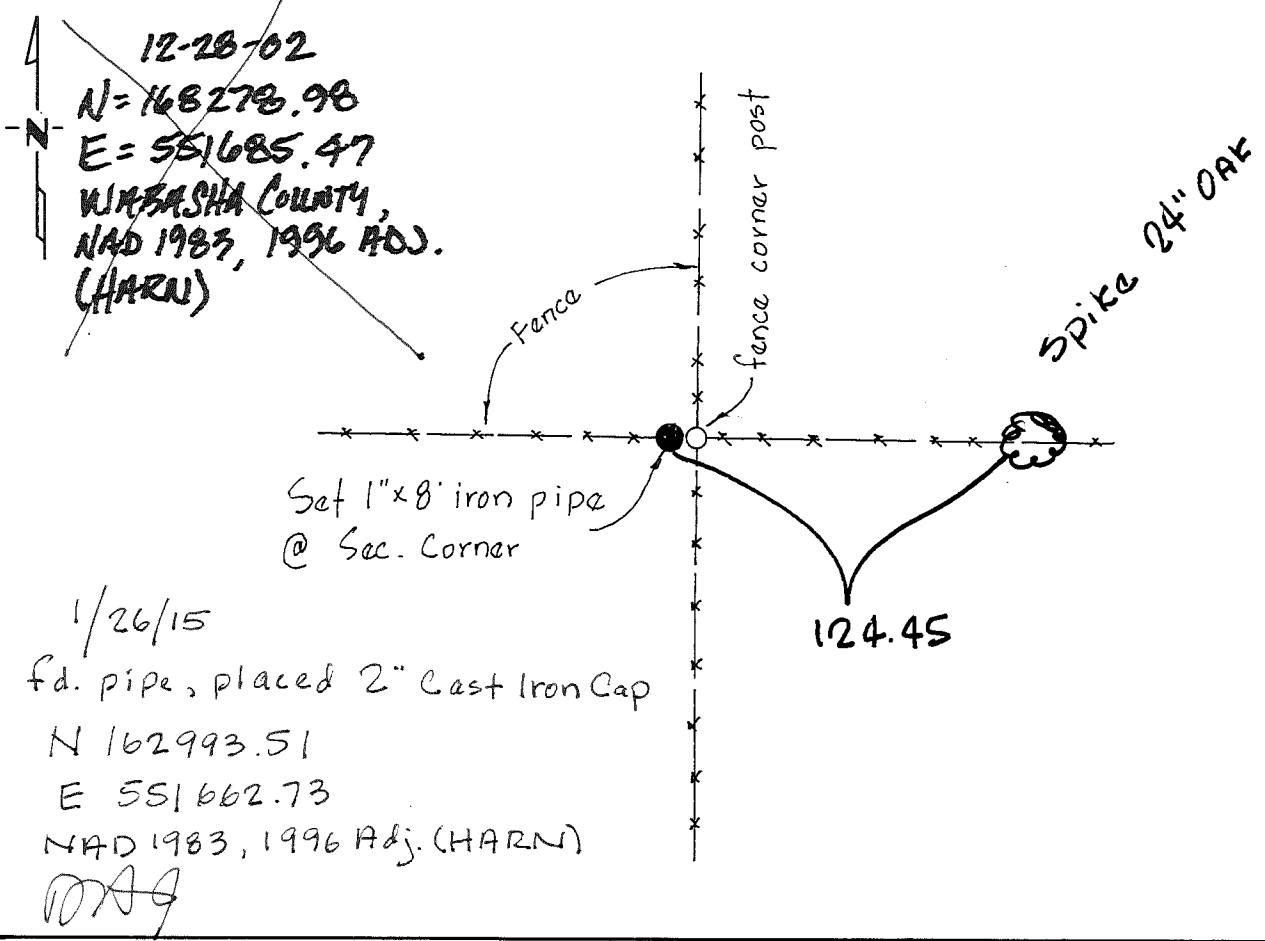 12-28-02
N=168278.98
E=551685.47
WABASHA COUNTY,
NAD 1983, 1996 ADJ.
(HARN)
N
Fence
fence corner post
Spike 24" OAK
Set 1"x8' iron pipe
@ Sec. Corner
124.45
1/26/15
fd. pipe, placed 2" Cast Iron Cap
N 162993.51
E 551662.73
NAD 1983, 1996 Adj. (HARN)